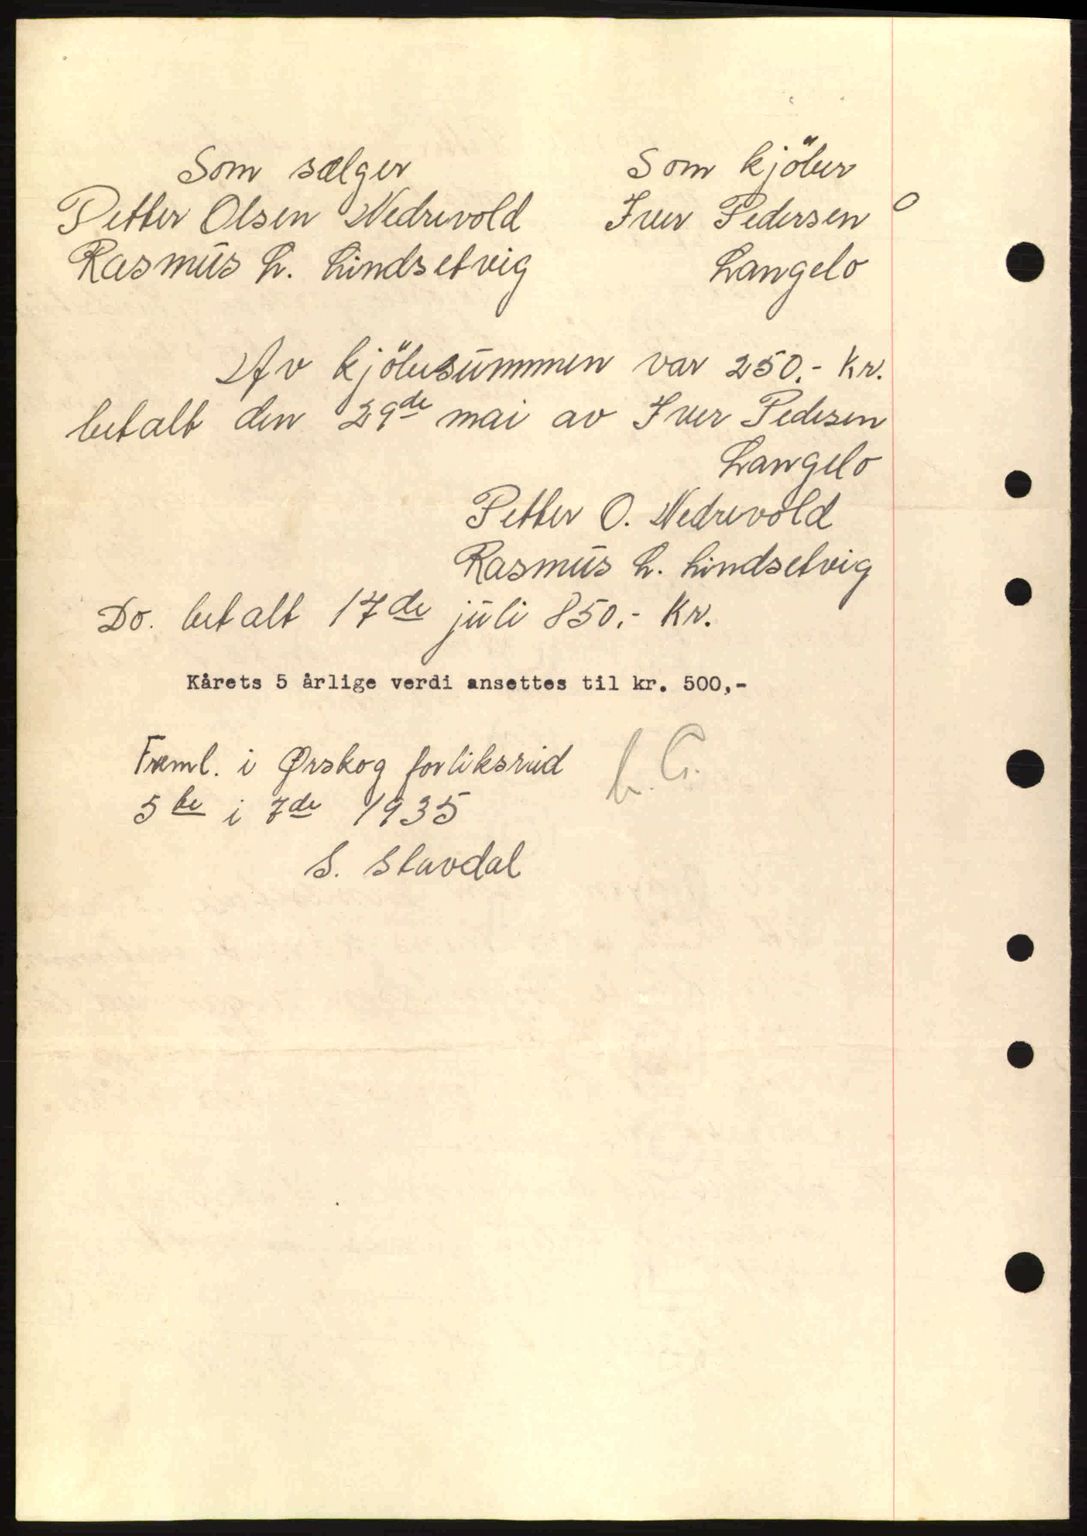 Som sælger
Petter Olsen Nedrevold
Rasmus L. Lindsetvig
Som kjöber
Iver Pedersen
Langelo
Av kjöbesummen var 250.- Kr.
betalt den 29de mai av Iver Pedesen
Langelo
Petter O. Nedrevold
Rasmus L. Lindsetvig
Do. betalt 17de juli 850.- Kr.
Kårets 5 årlige verdi ansettes til kr. 500,-
Freml. i Ørskog forliksråd
5te i 7de 1935
S. Stavdal